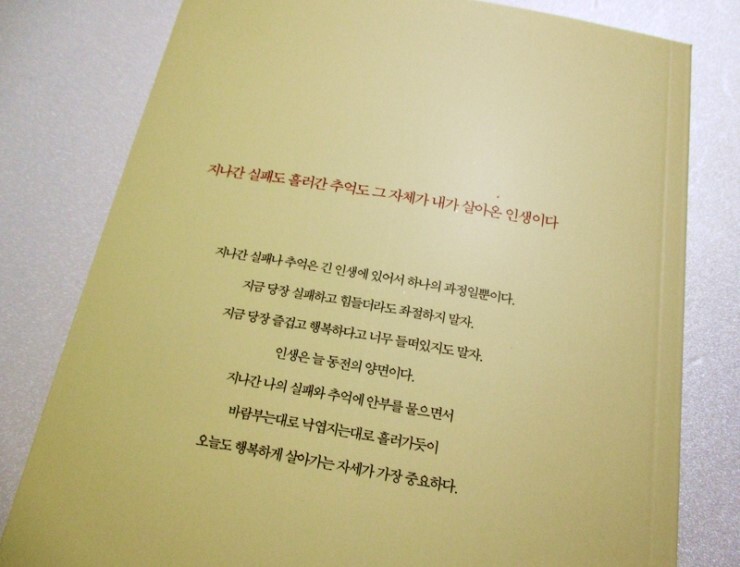 지나간 실패도 흘러간 추억도 그 자체가 내가 살아온 인생이다
지나간 실패나 추억은 긴 인생에 있어서 하나의 과정일뿐이다.
지금 당장 실패하고 힘들더라도 좌절하지 말자.
지금 당장 즐겁고 행복하다고 너무 들떠있지도 말자.
인생은 늘 동전의 양면이다.
지나간 나의 실패와 추억에 안부를 물으면서
바람부는대로 낙엽지는대로 흘러가듯이
오늘도 행복하게 살아가는 자세가 가장 중요하다.